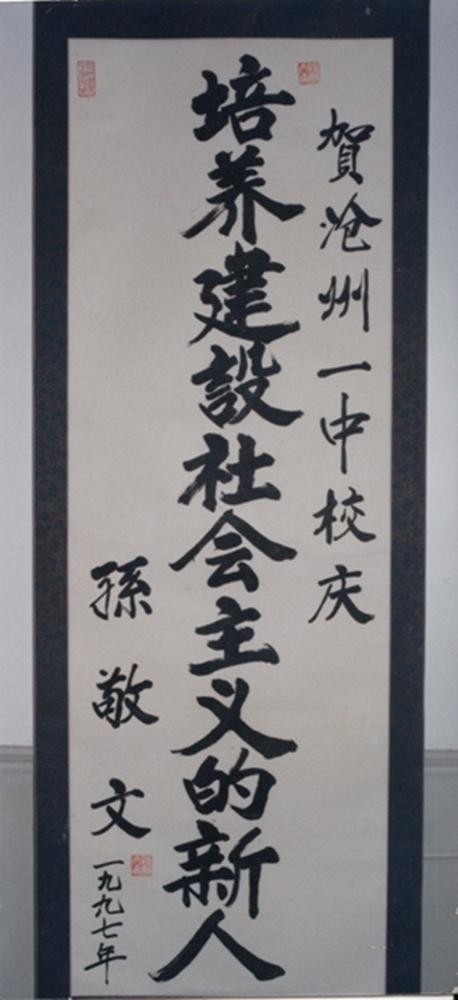 賀沧州一中校庆
培养建設社会主义的新人
孫敬文
一九九七年